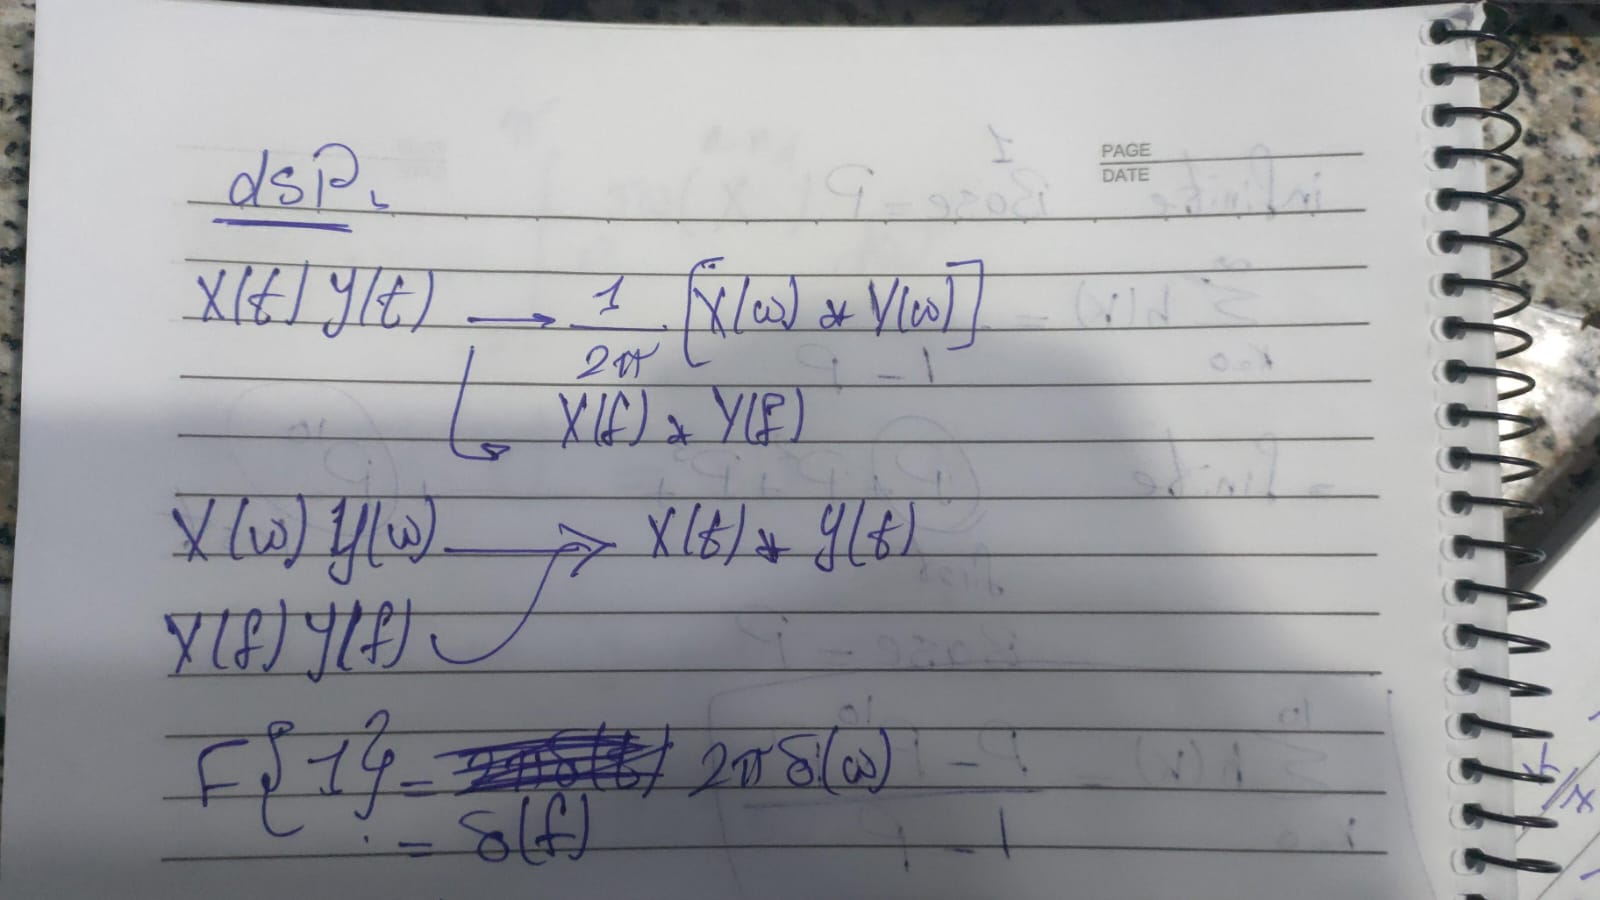 PAGE
DATE
dsP.
X(t) y(t) → 1/2π [X(ω) * Y(ω)]
X(f) * Y(f)
X(ω) Y(ω) → X(t) * y(t)
X(f) Y(f)
F{1} = 2πδ(ω)
= δ(f)